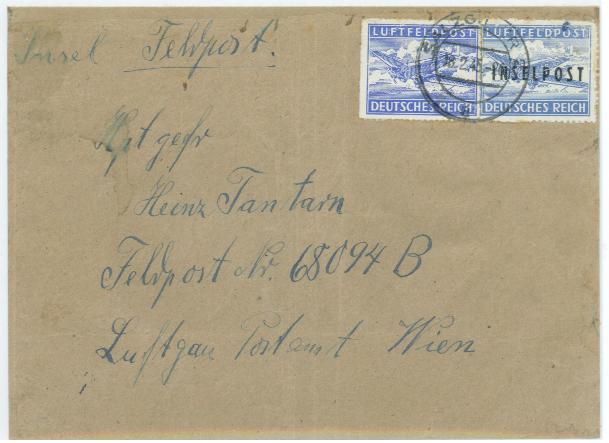 Insel Feldpost.
LUFTFELDPOST LUFTFELDPOST
18.2.45
INSELPOST
DEUTSCHES REICH DEUTSCHES REICH
Heinz Tantarn
Feldpost Nr. 68094 B
Luftgau Postamt Wien